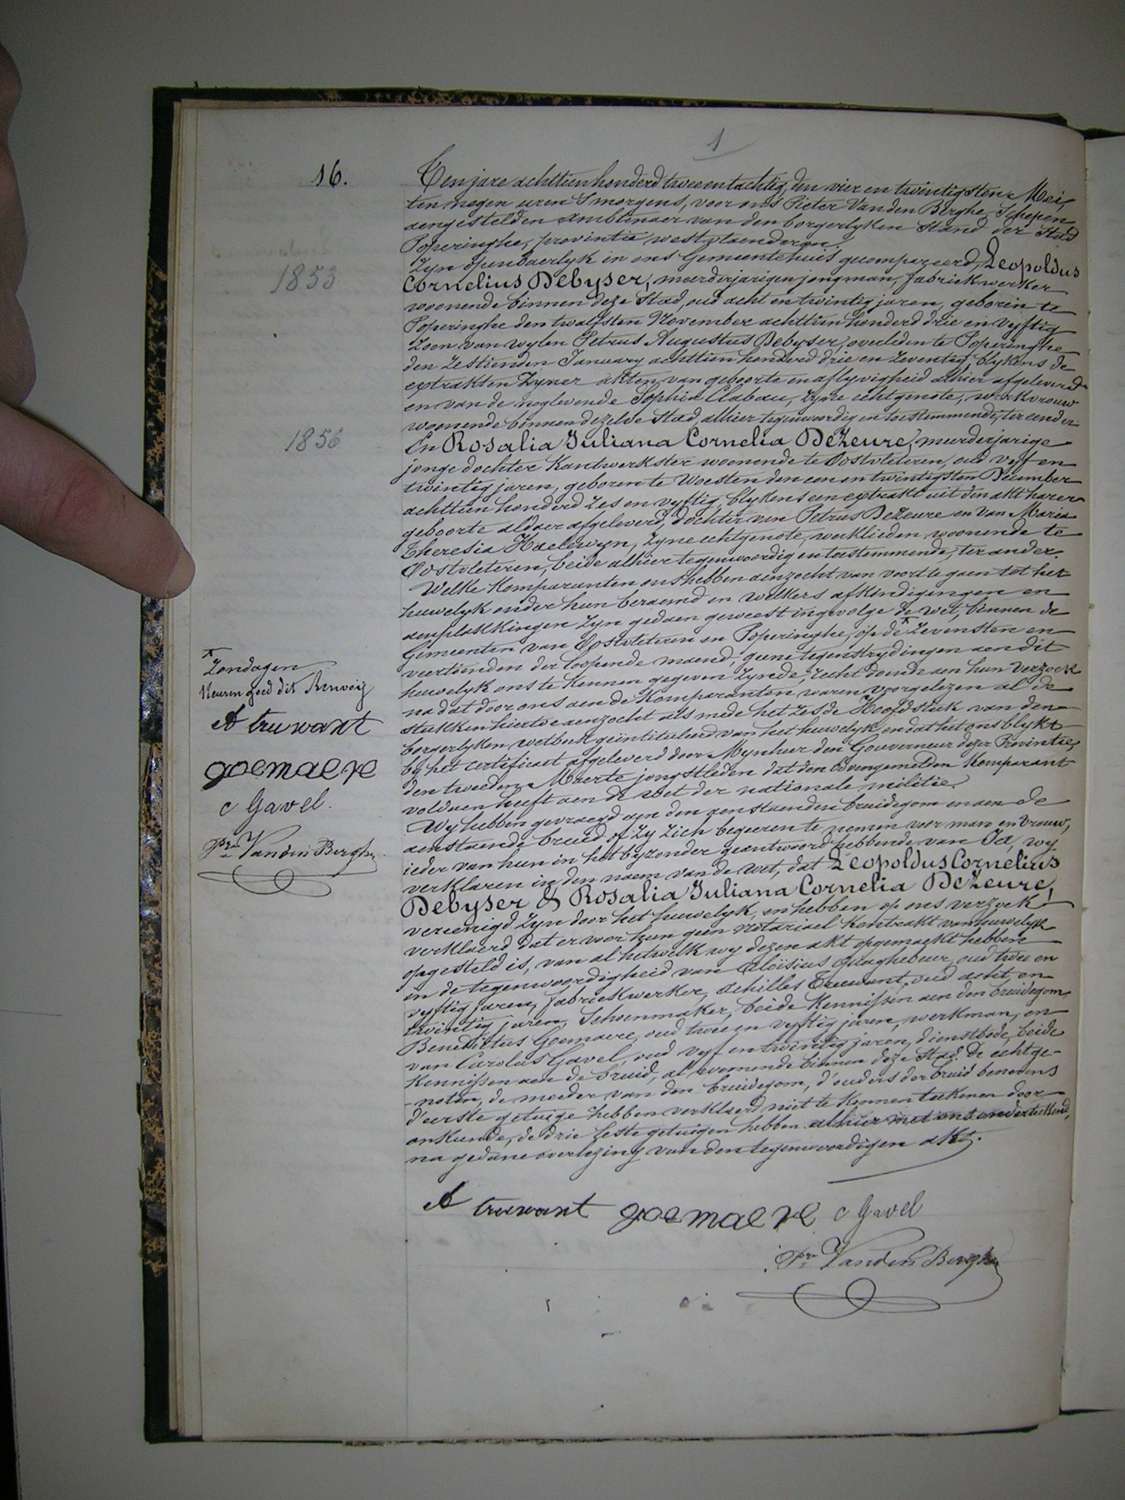 1
16.
Ten jare achttien honderd twee en tachtig, den vier en twintigsten Mei,
ten negen uren 's morgens, voor ons Pieter Vanden Berghe, Schepen
aengestelden ambtenaer van den borgerlyken Stand der Stad
Poperinghe, provintie westvlaenderen.
Zyn openbaerlyk in ons Gemeentehuis gecompareerd Leopoldus
1853
Cornelius Debyser, meerderjarigen jongman, fabriekwerker
woonende binnen deze Stad, oud acht en twintig jaren, geboren te
Poperinghe den twalfsten November achttien honderd drie en vyftig
Zoon van wylen Petrus Augustus Debyser, overleden te Poperinghe
den Zestienden January achttien honderd drie en Zeventig, blykens de
extrakten Zyner akten van geboorte en aflyvigheid alhier afgeleverd
en van de nog levende Sophie Clabau, Zyne echtgenote, werkvrouw
woonende binnen dezelve Stad alhier tegenwoordig en toestemmende, ter eender
1856
En Rosalia Juliana Cornelia DeZeure, meerderjarige
jonge dochter Kantwerkster woonende te Oostvleteren, oud vyf en
twintig jaren, geboren te Woesten den een en twintigsten December
achttien honderd Zes en vyftig, blykens een extrakt uit den akt harer
geboorte aldaer afgeleverd, dochter van Petrus DeZeure en van Maria
Theresia Haelewyn, Zyne echtgenote, werklieden, woonende te
Oostvleteren, beide alhier tegenwoordig en toestemmende, ter ander.
Welke Komparanten ons hebben aenzocht van voort te gaen tot het
huwelyk onder hun beraemd en welkers afkindigingen en
aenplakkingen Zyn gedaen geweest ingevolge de wet, binnen de
Gemeenten van Oostvleteren en Poperinghe, op de Zevensten en
veertienden der loopende maend, geene tegenstrydingen aen dit
huwelyk ons te Kennen gegeven Zynde, recht doende aen hun verzoek
na dat door ons aen de Komparanten waren voorgelezen al de
stukken hiertoe aenzocht als mede het Zesde Hoofdstuk van den
borgerlyken wetboek geintituleerd van het huwelyk en dat het ons blykt
by het certificaet afgeleverd door Mynheer den Gouverneur dezer Provintie,
den tweeden Maerte jongstleden dat den bovengemelden Komparant
voldaen heeft aen de wet der nationale militie.
Wy hebben gevraegd aen den aenstaenden bruidegom en aen de
aenstaende bruid of Zy Zich begeeren te nemen voor man en vrouw,
ieder van hun in het byzonder geantwoord hebbende van Ja, wy
verklaren in den naem van de wet, dat Leopoldus Cornelius
Debyser & Rosalia Juliana Cornelia DeZeure,
vereenigd Zyn door het huwelyk, en hebben op ons verzoek
verklaerd dat er voor hun geen notariael Kontrakt van huwelyk
opgesteld is, van al hetwelk wy dezen akt opgemaekt hebben
in de tegenwoordigheid van Aloisius Quaghebeur, oud twee en
vyftig jaren, fabriekwerker, Achilles Truwant, oud acht en
twintig jaren, Schoenmaker, beide Kennissen aen den bruidegom,
Benedictus Goemaere, oud twee en vyftig jaren, werkman, en
van Carolus Gavel, oud vyf en twintig jaren, dienstbode, beide
Kennissen aen de bruid, al woonende binnen deze Stad. De echtge-
noten, de moeder van den bruidegom, d'ouders der bruid benevens
d'eerste getuige hebben verklaerd niet te Konnen teekenen door
onkunde, de drie leste getuigen hebben alhier met ons onderteekend,
na gedane overlezing van den tegenwoordigen akt.
Zondagen
Keuren goed dit Anwerg
A truwant
goemaere
C Gavel.
Pre Vanden Berghe
A truwant goemaere C Gavel
Pre Vanden Berghe